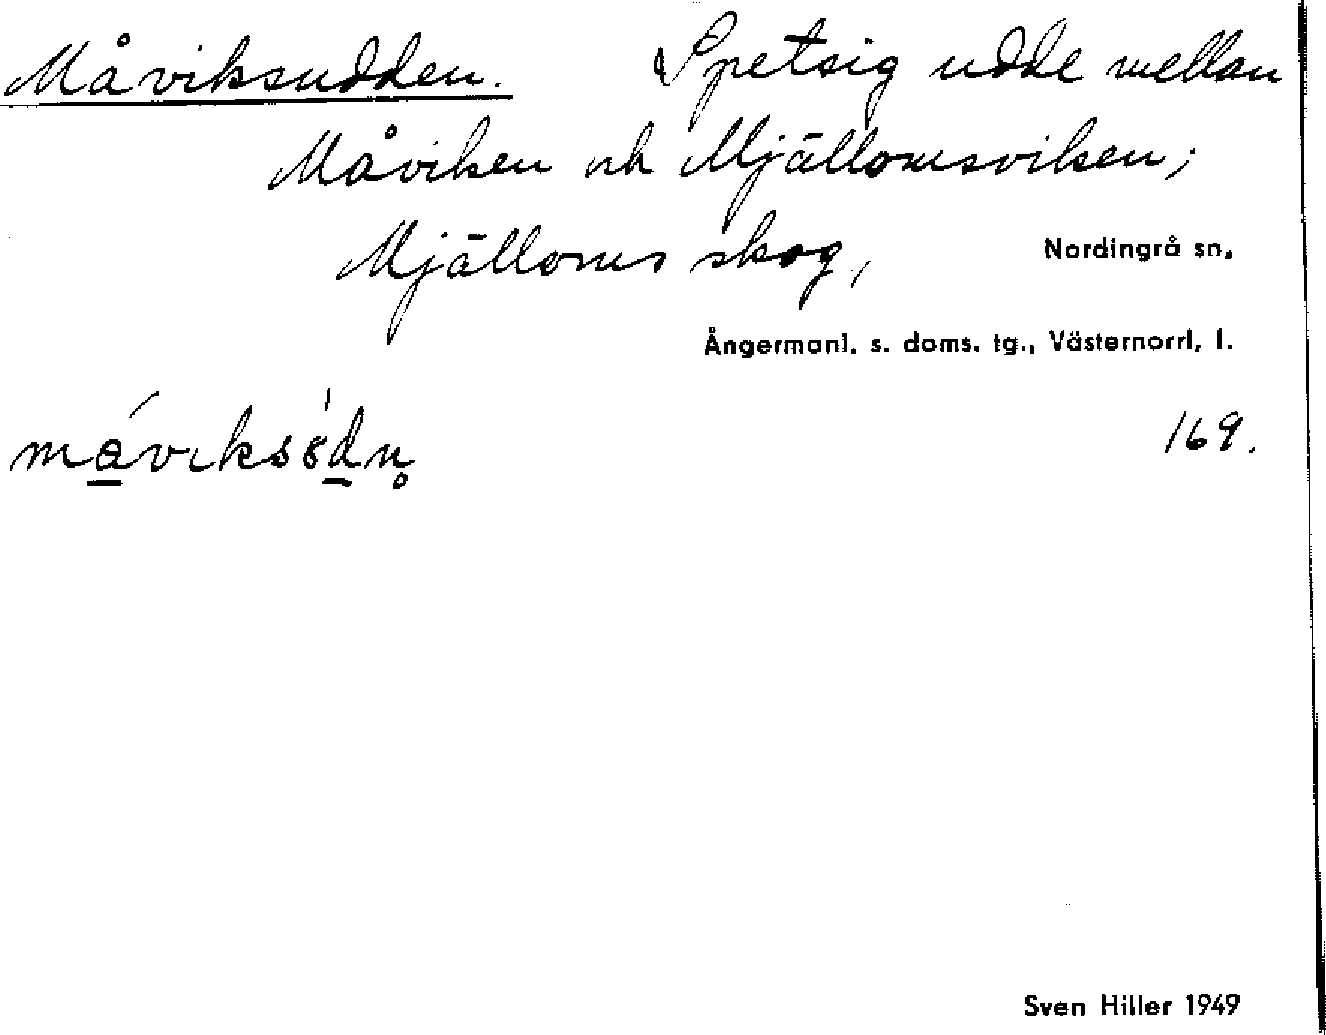 Måviksudden. Spetsig udde mellan
Måviken och Mjällomsviken;
Mjälloms skog, Nordingrå sn,
Ångermanl. s. doms. tg., Västernorrl. l.
169.
Sven Hiller 1949